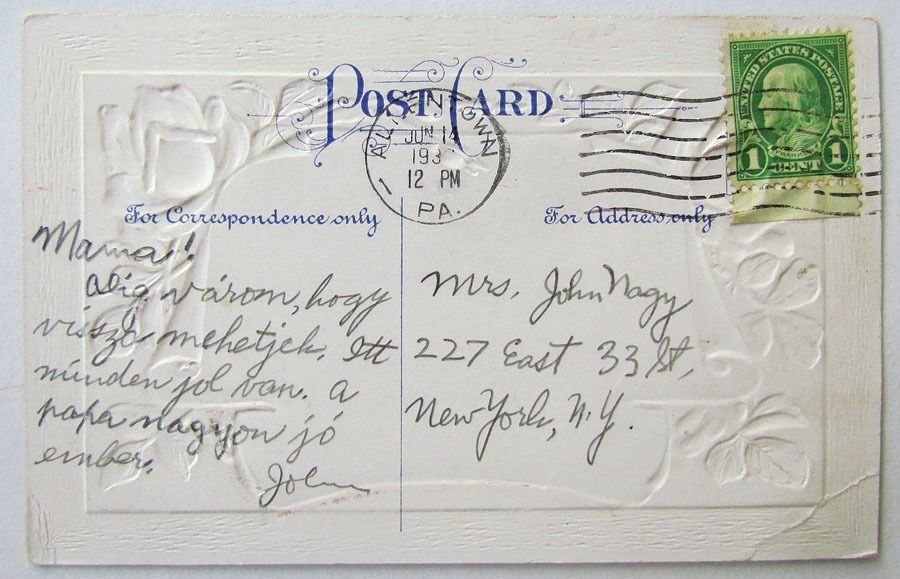 POST CARD
ALLENTOWN
JUN 14
193
12 PM
1
PA.
UNITED STATES POSTAGE
FRANKLIN
1 CENT 1
For Correspondence only
For Address only
Mama!
alig várom, hogy
vissza mehetjek. Itt
minden jol van. a
papa nagyon jó
ember.
John
Mrs. John Nagy
227 East 33 St,
New York, N.Y.